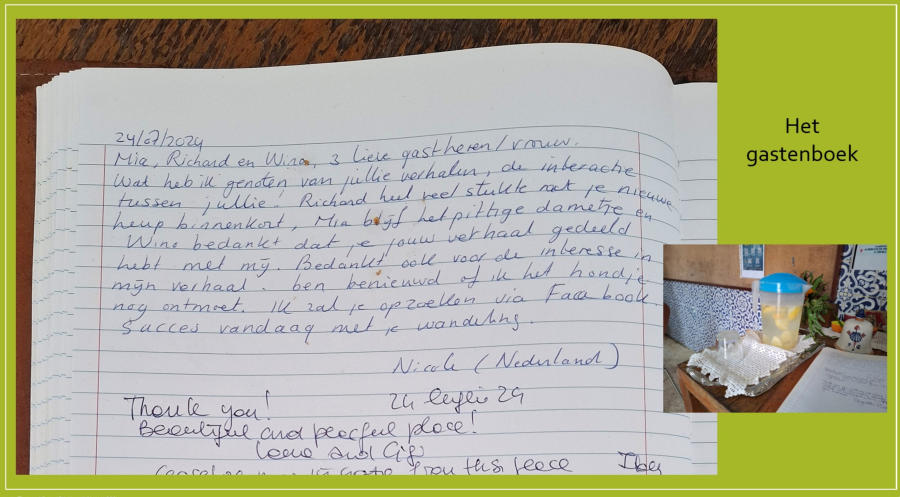 Het
gastenboek
24/07/2024
Mia, Richard en Wino, 3 lieve gastheren/vrouw.
Wat heb ik genoten van jullie verhalen, de interactie
tussen jullie! Richard heel veel sterkte met je nieuwe
heup binnenkort, Mia blijf het pittige dametje en
Wino bedankt dat je jouw verhaal gedeeld
hebt met mij. Bedankt ook voor de interesse in
mijn verhaal. ben benieuwd of ik het hondje
nog ontmoet. Ik zal je opzoeken via Facebook
Succes vandaag met je wandeling.
Nicole (Nederland)
Thank you! 24 24
Beautiful and peaceful place!
and
from this peace